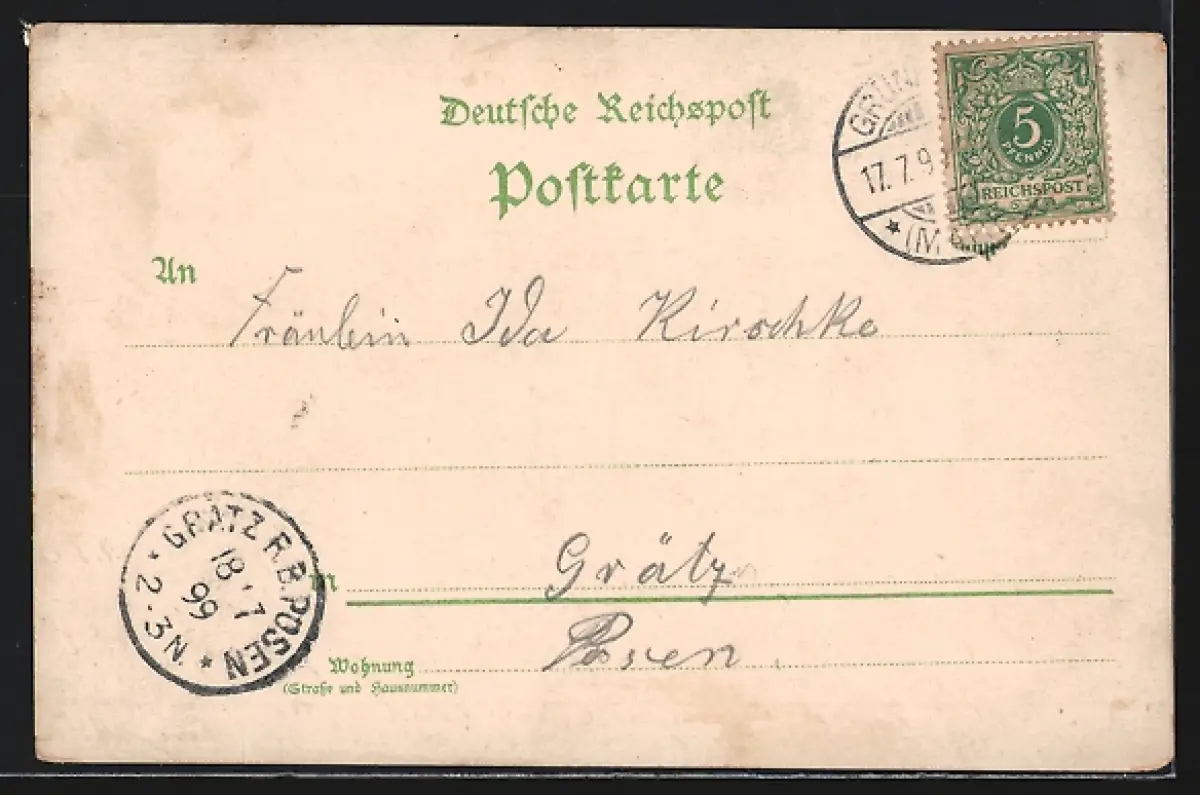 Deutsche Reichspost
Postkarte
5
PFENNIG
REICHSPOST
17.7.9
(M
An
Fräulein Ida Kirschke
GRÄTZ R.B. POSEN
18.7
99
* 2-3N *
Grätz
Posen
Wohnung
(Straße und Hausnummer)